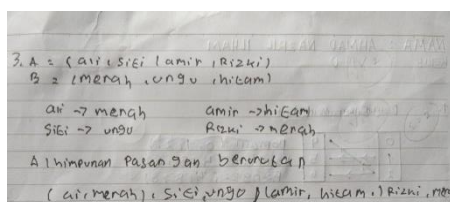 3. A = (ali, siti, amir, Rizki)
B = (merah, ungu, hitam)
ali -> merah amir -> hitam
Siti -> ungu Rizki -> merah
A) himpunan Pasangan berurutan
(ali, merah), Siti, ungu) (amir, hitam.) Rizki, mer